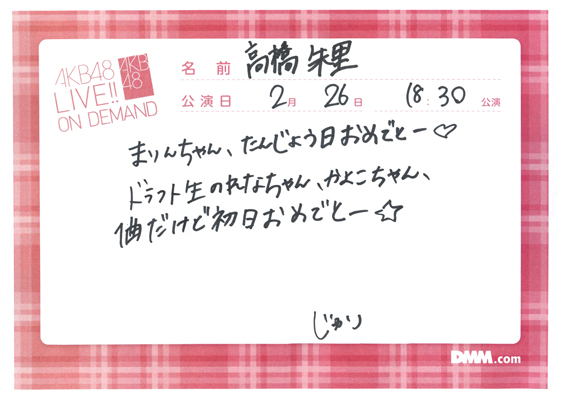 AKB48
LIVE!!
ON DEMAND
AKB
48
名前 高橋朱里
公演日 2月 26日 18:30 公演
まりんちゃん、たんじょう日おめでとー♡
ドラフト生のれなちゃん、かよこちゃん、
1曲だけど初日おめでとー☆
じゅり
DMM.com